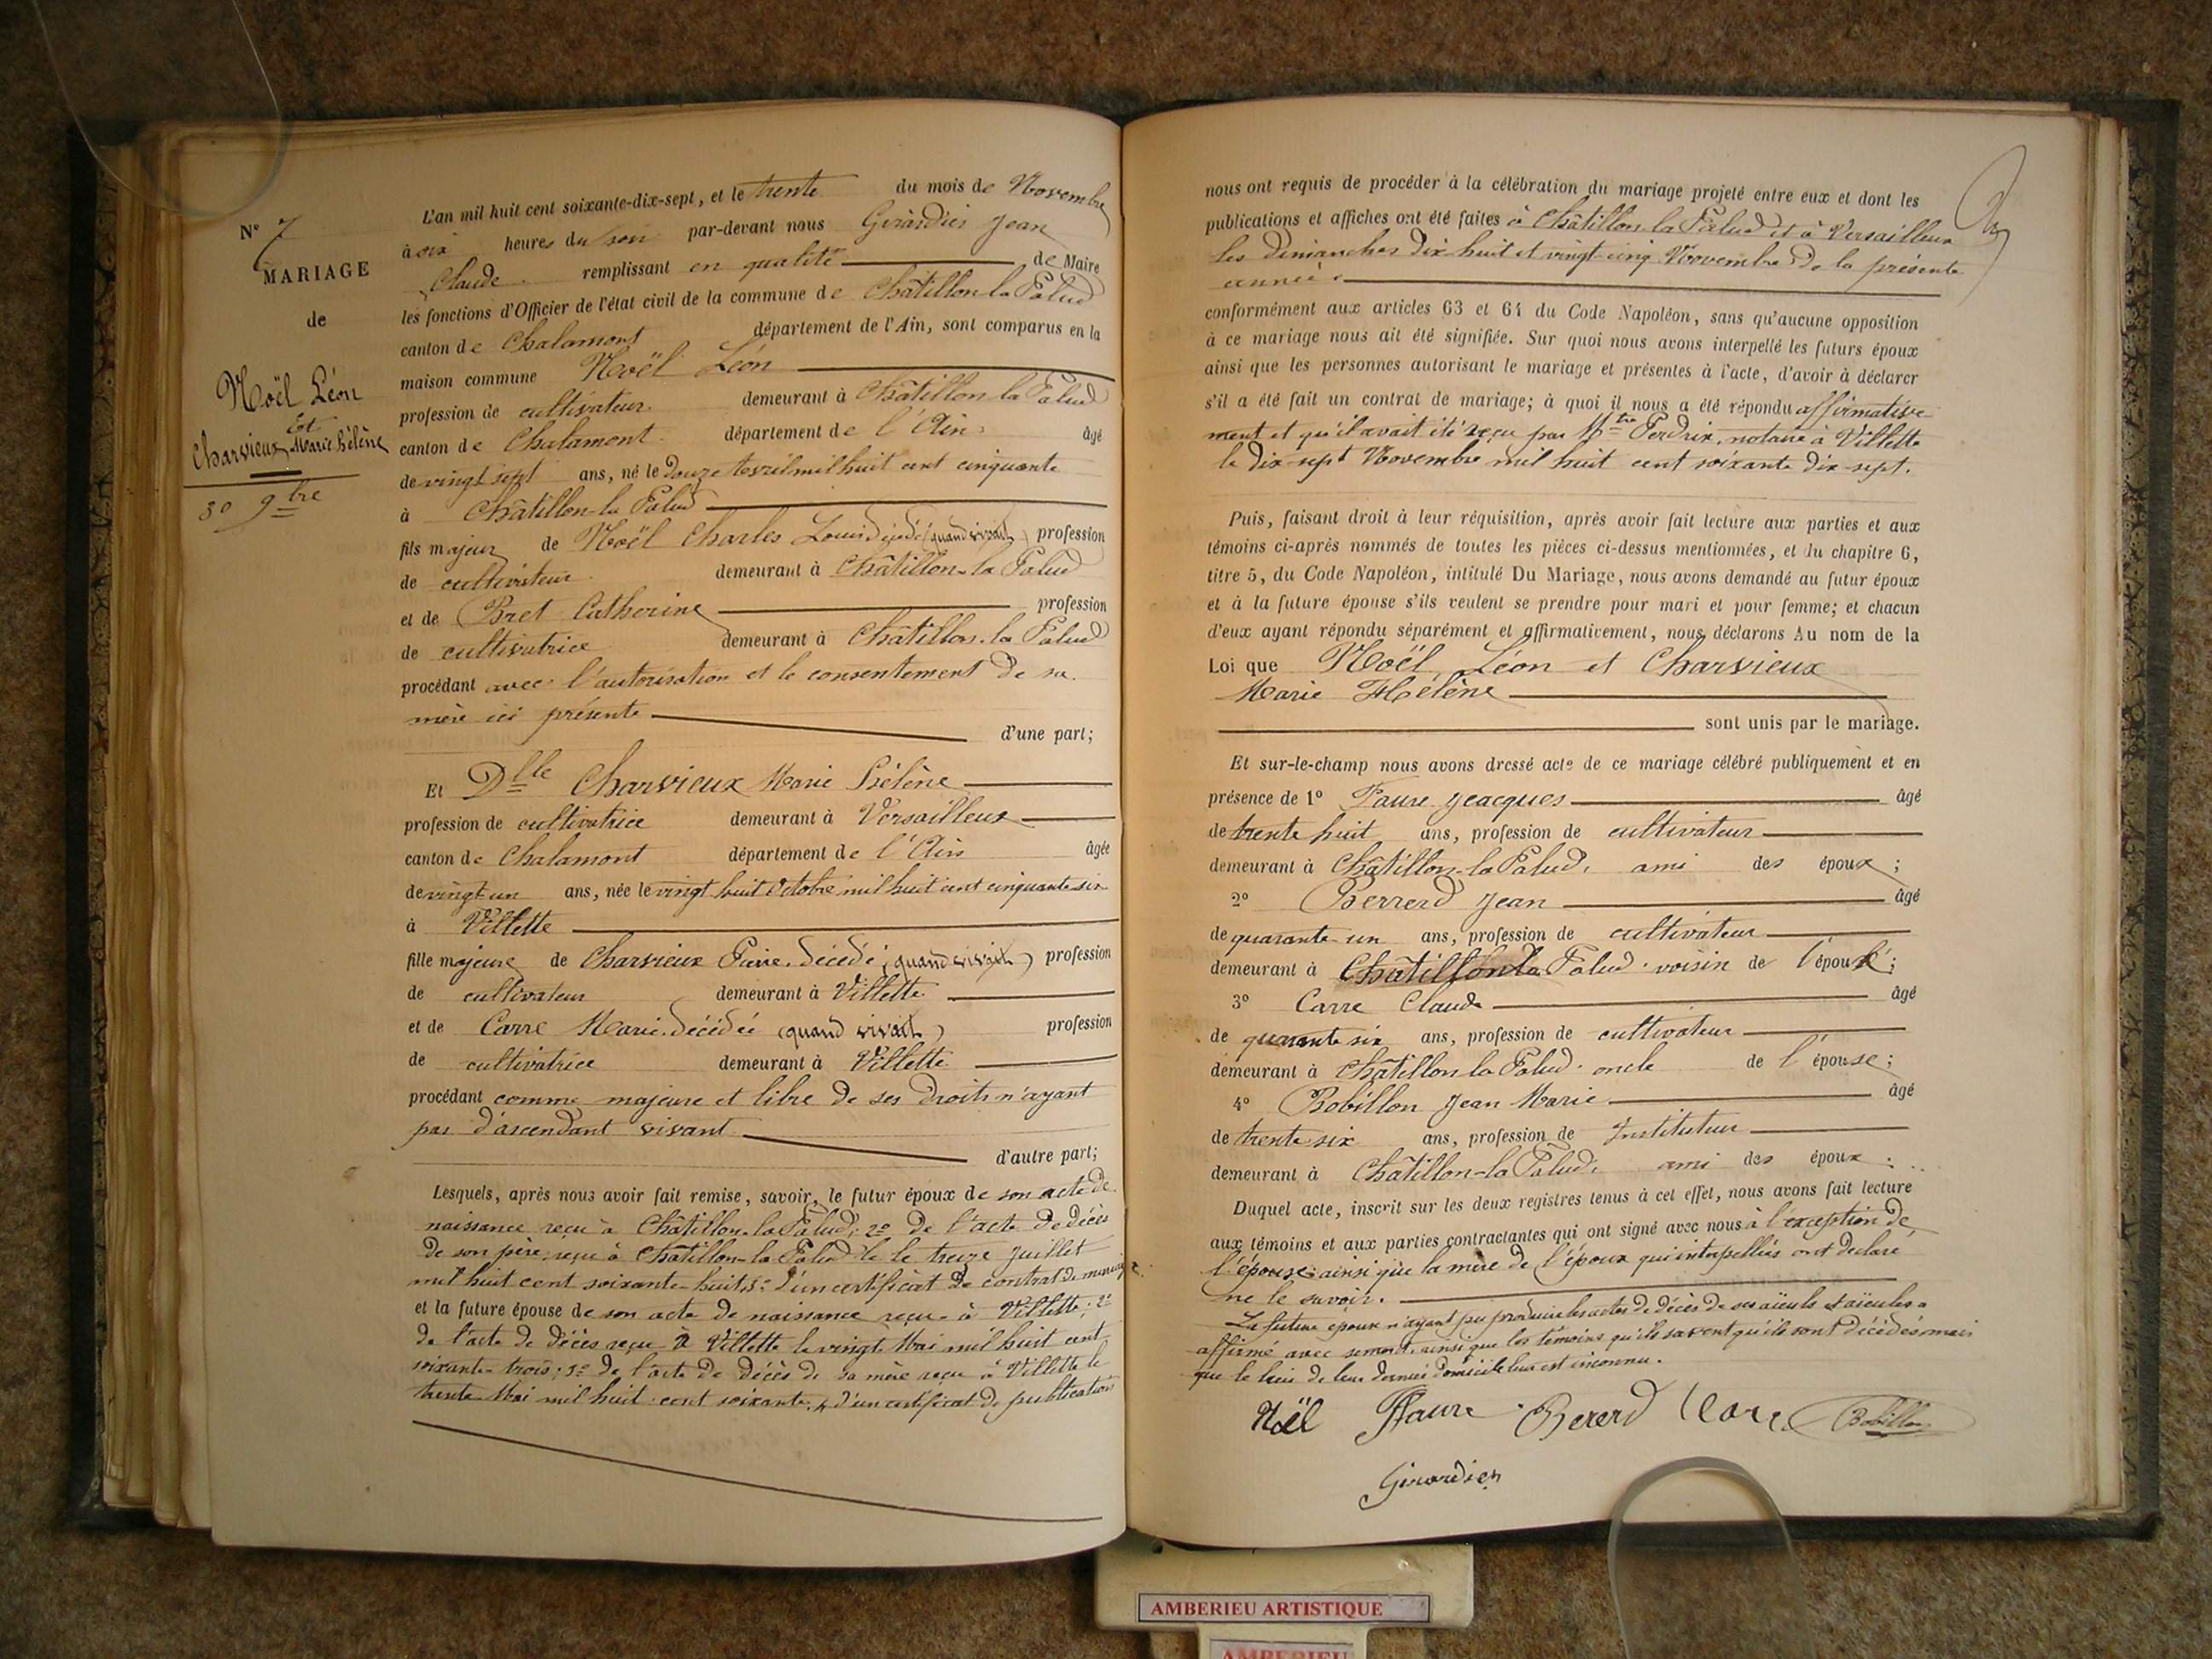 N° 7
MARIAGE
de
Noël Léon
Et
Charvieux Marie Hélène
30 9bre
L'an mil huit cent soixante-dix-sept, et le trente du mois de Novembre
à six heures du soir par-devant nous Girardier Jean
Claude remplissant en qualité de Maire
les fonctions d'Officier de l'état civil de la commune de Châtillon-la-Palud
canton de Chalamont département de l'Ain, sont comparus en la
maison commune Noël Léon
profession de cultivateur demeurant à Châtillon la Palud
canton de Chalamont département de l'Ain âgé
de vingt sept ans, né le Douze Avril mil huit cent cinquante
à Châtillon-la Palud
fils majeur de Noël Charles Louis décédé (quand vivait) profession
de cultivateur demeurant à Châtillon-la Palud
et de Bret Catherine profession
de cultivatrice demeurant à Châtillon-la Palud
procédant avec l'autorisation et le consentement de sa
mère ici présente
d'une part;
Et Dlle Charvieux Marie Hélène
profession de cultivatrice demeurant à Versailleux
canton de Chalamont département de l'Ain âgée
de vingt-un ans, née le vingt huit Octobre mil huit cent cinquante six
à Villette
fille majeure de Charvieux Pierre décédé (quand vivait) profession
de cultivateur demeurant à Villette
et de Carre Marie décédée (quand vivait) profession
de cultivatrice demeurant à Villette
procédant comme majeure et libre de ses droits n'ayant
pas d'ascendant vivant
d'autre part;
Lesquels, après nous avoir fait remise, savoir, le futur époux de son acte de
naissance reçu à Châtillon-la Palud; 2° de l'acte de décès
de son père reçu à Châtillon-la Palud le le treize Juillet
mil huit cent soixante-huit; 3° d'un certificat de contrat de mariage
et la future épouse de son acte de naissance reçu à Villette; 2°
de l'acte de décès reçu à Villette le vingt Mai mil huit cent
soixante-trois; 3° de l'acte de décès de sa mère reçu à Villette le
trente Mai mil huit cent soixante; 4 d'un certificat de publication
nous ont requis de procéder à la célébration du mariage projeté entre eux et dont les
publications et affiches ont été faites à Châtillon-la Palud et à Versailleux
les dimanches dix huit et vingt-cinq Novembre de la présente
année
conformément aux articles 63 et 64 du Code Napoléon, sans qu'aucune opposition
à ce mariage nous ait été signifiée. Sur quoi nous avons interpellé les futurs époux
ainsi que les personnes autorisant le mariage et présentes à l'acte, d'avoir à déclarer
s'il a été fait un contrat de mariage; à quoi il nous a été répondu affirmative
ment et qu'il avait été reçu par Mtre Perdrix, notaire à Villette
le dix-sept Novembre mil huit cent soixante dix-sept.
Puis, faisant droit à leur réquisition, après avoir fait lecture aux parties et aux
témoins ci-après nommés de toutes les pièces ci-dessus mentionnées, et du chapitre 6,
titre 5, du Code Napoléon, intitulé Du Mariage, nous avons demandé au futur époux
et à la future épouse s'ils veulent se prendre pour mari et pour femme; et chacun
d'eux ayant répondu séparément et affirmativement, nous déclarons Au nom de la
Loi que Noël Léon et Charvieux
Marie Hélène
sont unis par le mariage.
Et sur-le-champ nous avons dressé acte de ce mariage célébré publiquement et en
présence de 1° Faure Jeacques âgé
de trente huit ans, profession de cultivateur
demeurant à Châtillon-la Palud, ami des époux;
2° Berrerd Jean âgé
de quarante-un ans, profession de cultivateur
demeurant à Châtillon la Palud voisin de l'époux;
3° Carre Claude âgé
de quarante six ans, profession de cultivateur
demeurant à Châtillon la Palud oncle de l'épouse;
4° Bobillon Jean Marie âgé
de trente-six ans, profession de Instituteur
demeurant à Châtillon-la Palud, ami des époux.
Duquel acte, inscrit sur les deux registres tenus à cet effet, nous avons fait lecture
aux témoins et aux parties contractantes qui ont signé avec nous à l'exception de
l'épouse ainsi que la mère de l'époux qui interpellées ont déclaré
ne le savoir.
Le futur époux n'ayant pu produire les actes de décès de ses aïeuls et aïeules a
affirmé avec serment, ainsi que les témoins qu'ils savent qu'ils sont décédés mais
que le lieu de leur dernier domicile leur est inconnu.
Noël Faure Bererd Carre Bobillon
Girardier
AMBERIEU ARTISTIQUE
AMBERIEU